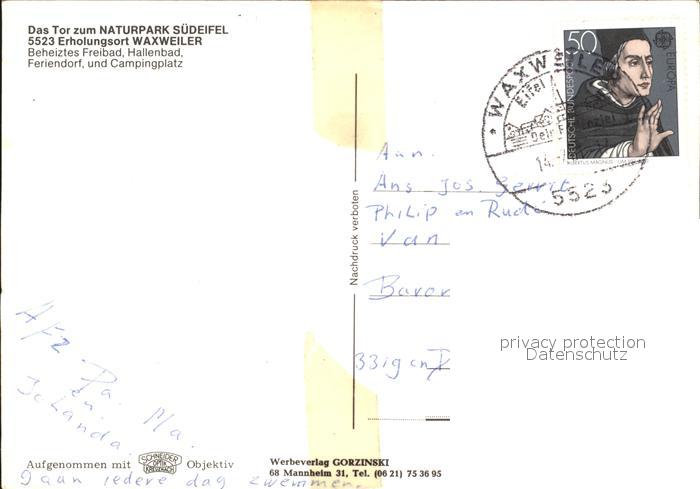 Das Tor zum NATURPARK SÜDEIFEL
5523 Erholungsort WAXWEILER
Beheiztes Freibad, Hallenbad,
Feriendorf, und Campingplatz
50
EUROPA
DEUTSCHE BUNDESPOST
ALBERTUS MAGNUS
WAXWEILER
Eifel
Dein
14.
5523
Aan.
Ans Jos. Gerrit
Philip en Rudé
Van
Nachdruck verboten
privacy protection
Datenschutz
Afz. Pa. Ma.
en.
Johanda.
Aufgenommen mit SCHNEIDER OPTIK KREUZNACH Objektiv
Gaan iedere dag zwemmen.
Werbeverlag GORZINSKI
68 Mannheim 31, Tel. (06 21) 75 36 95